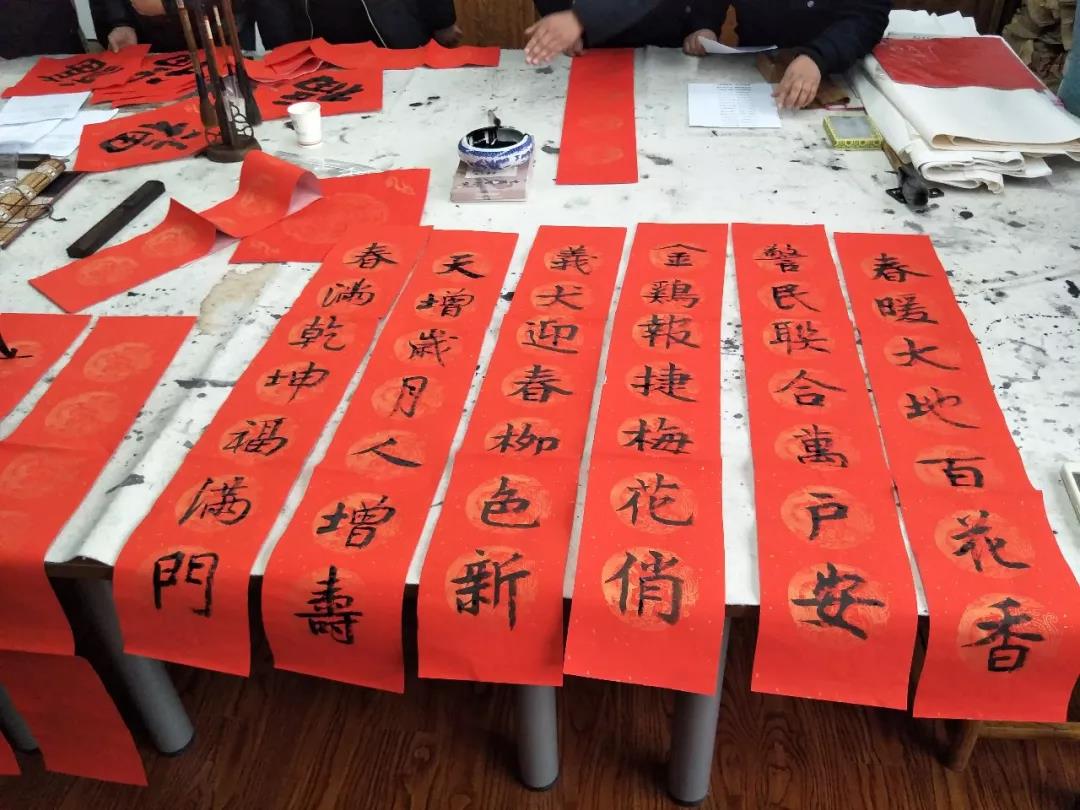 春暖大地百花香
警民聯合萬户安
金鷄報捷梅花俏
義犬迎春柳色新
天增歲月人增壽
春滿乾坤福滿門
福
福
福